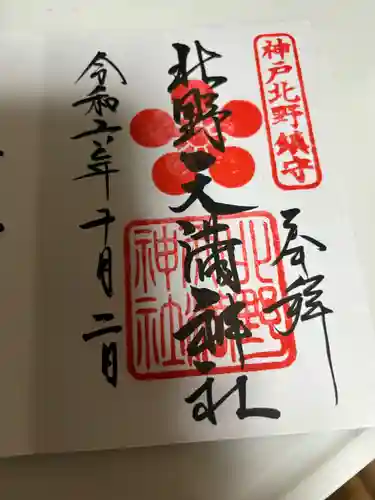 神戸北野鎮守
奉拝
北野天満神社
北野
天満
神社
令和六年十月二日